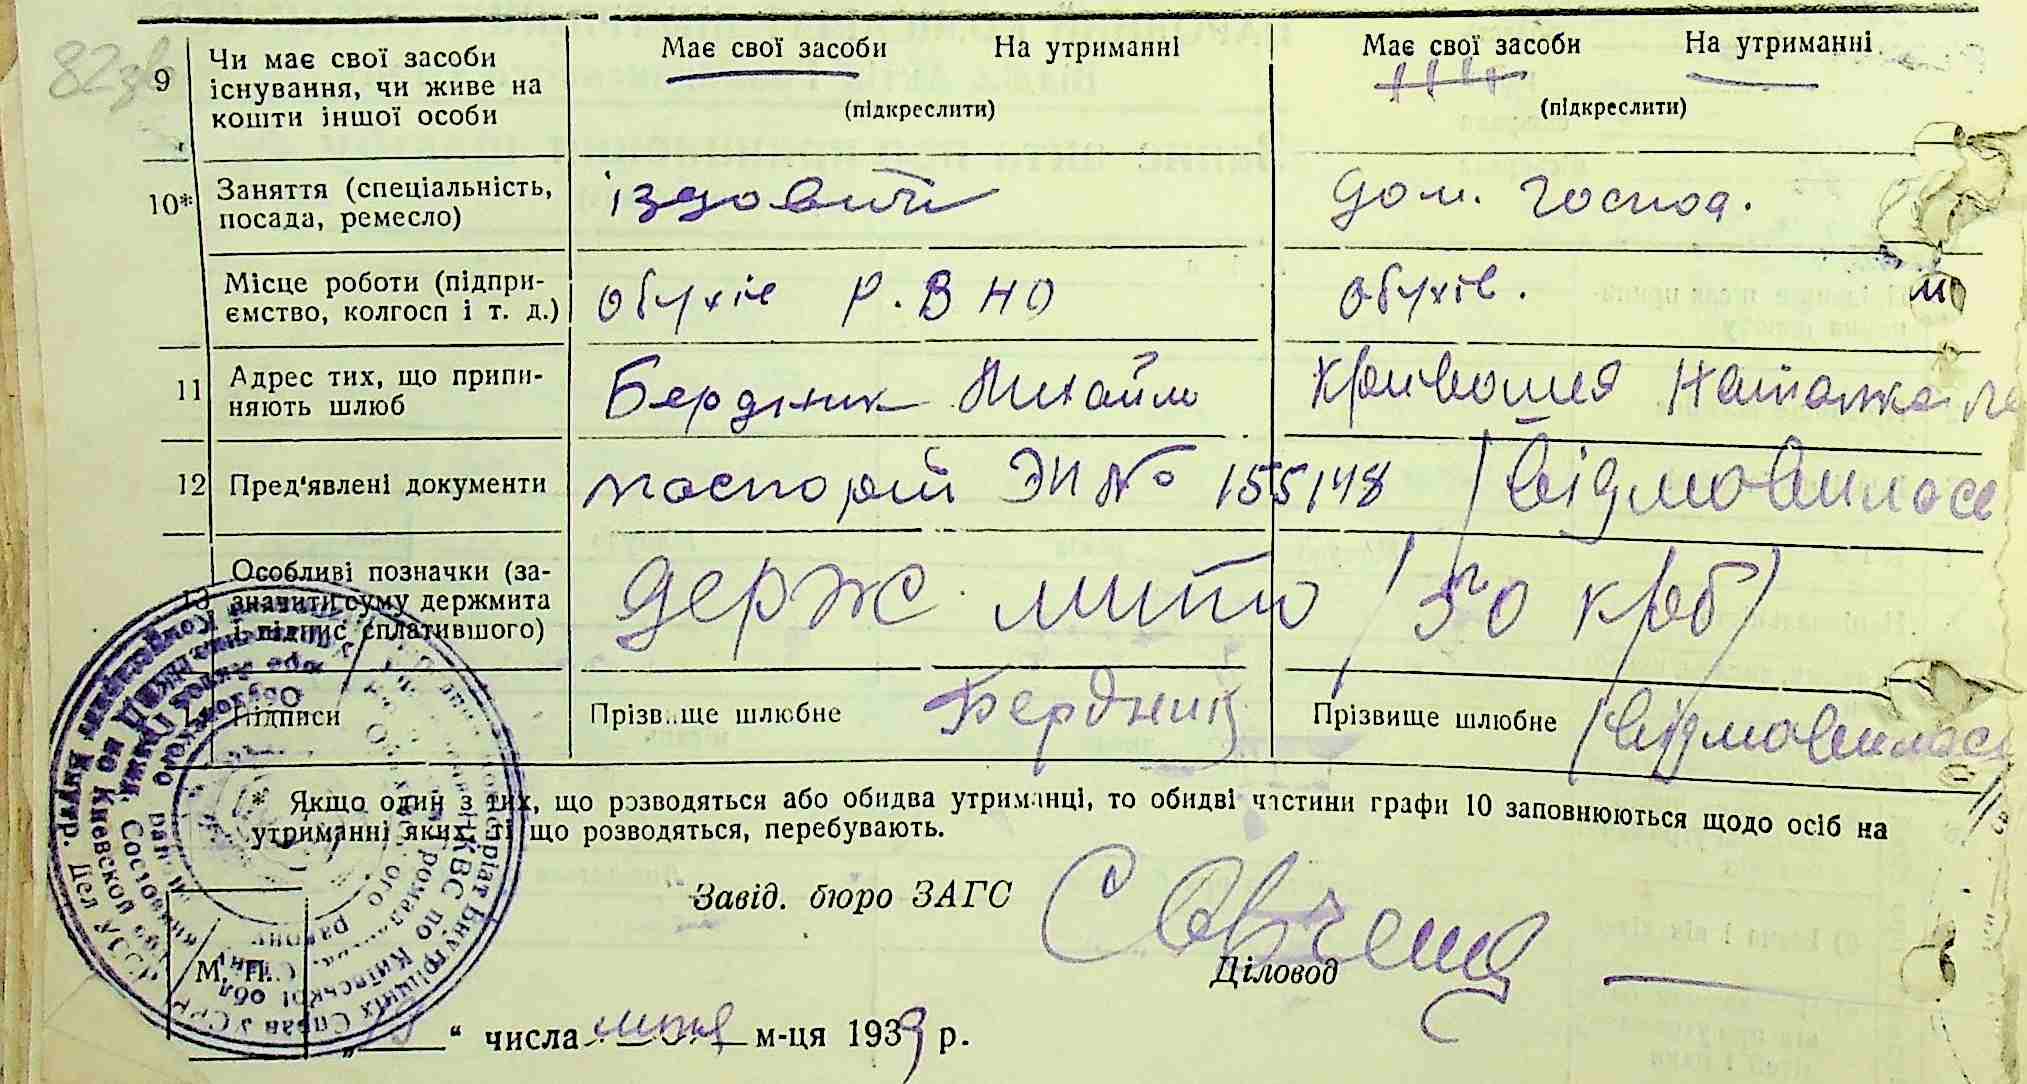 82зв
Має свої засоби На утриманні Має свої засоби На утриманні
9 Чи має свої засоби існування, чи живе на кошти іншої особи (підкреслити) (підкреслити)
10* Заняття (спеціальність, посада, ремесло) їздовий дом. господ.
Місце роботи (підприємство, колгосп і т. д.) Обухів Р.В НО Обухів.
11 Адрес тих, що припиняють шлюб Бердник Михайло Кривошия Наталка
12 Пред'явлені документи паспорт ЭП № 155148 /відмовилась
13 Особливі позначки (зазначити суму держмита і підпис сплатившого) держ мито /50 крб/
Підписи Прізвище шлюбне Бердник Прізвище шлюбне /відмовилась
* Якщо один з тих, що розводяться або обидва утриманці, то обидві частини графи 10 заповнюються щодо осіб на
утриманні яких ті що розводяться, перебувають.
Завід. бюро ЗАГС
Діловод
М. П.
„ “ числа м-ця 1939 р.